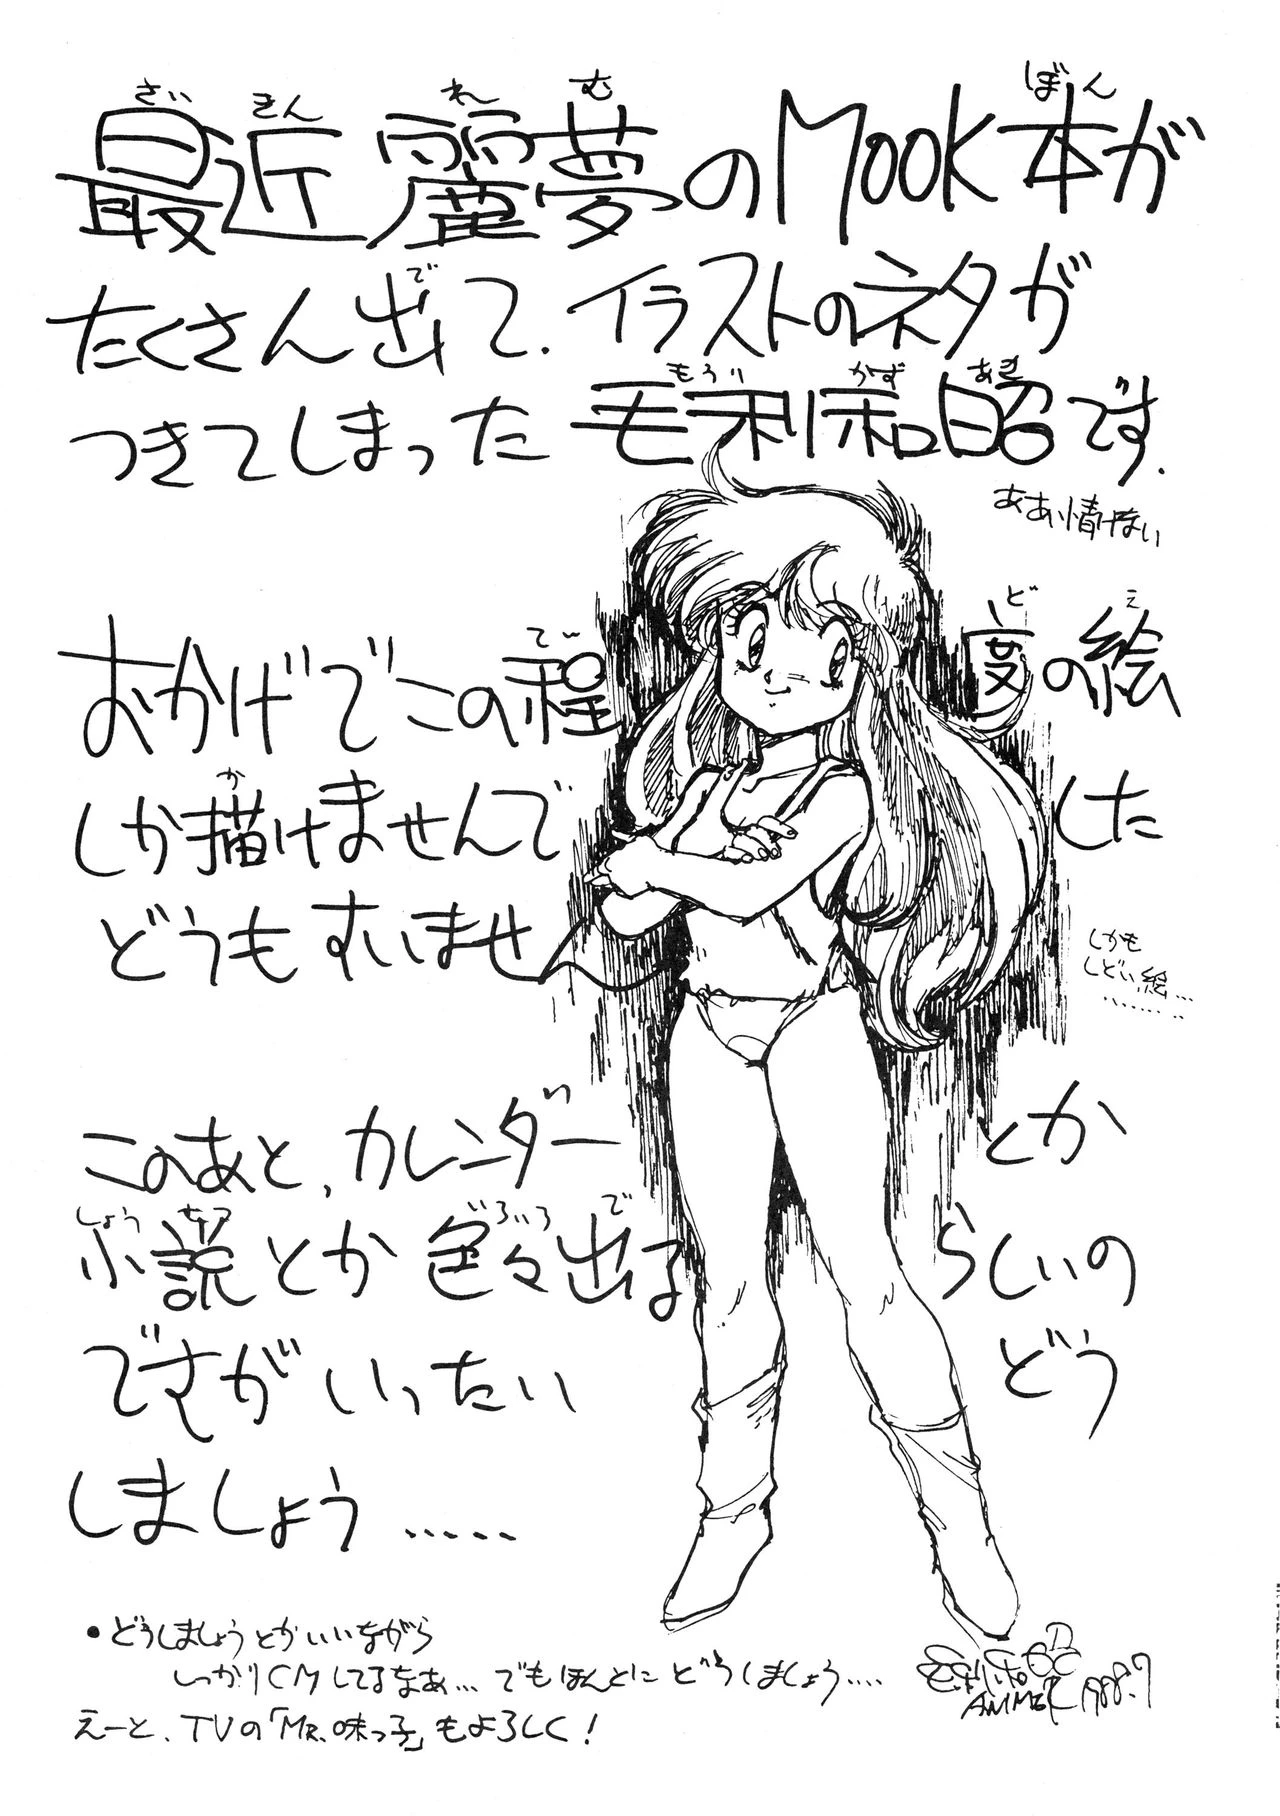 最近麗夢のMOOK本が
たくさん出て、イラストのネタが
つきてしまった毛利和昭です.
ああ、情けない
おかげでこの程度の絵
しか描けませんでした
どうもすいませ
しかも
しどい絵…
………
このあと、カレンダーとか
小説とか色々出るらしいの
ですがいったいどう
しましょう……
•どうしましょうとかいいながら
しっかりCMしてるなあ…でもほんとにどうしましょう….
えーと、TVの「MR.味っ子」もよろしく!
1988.7